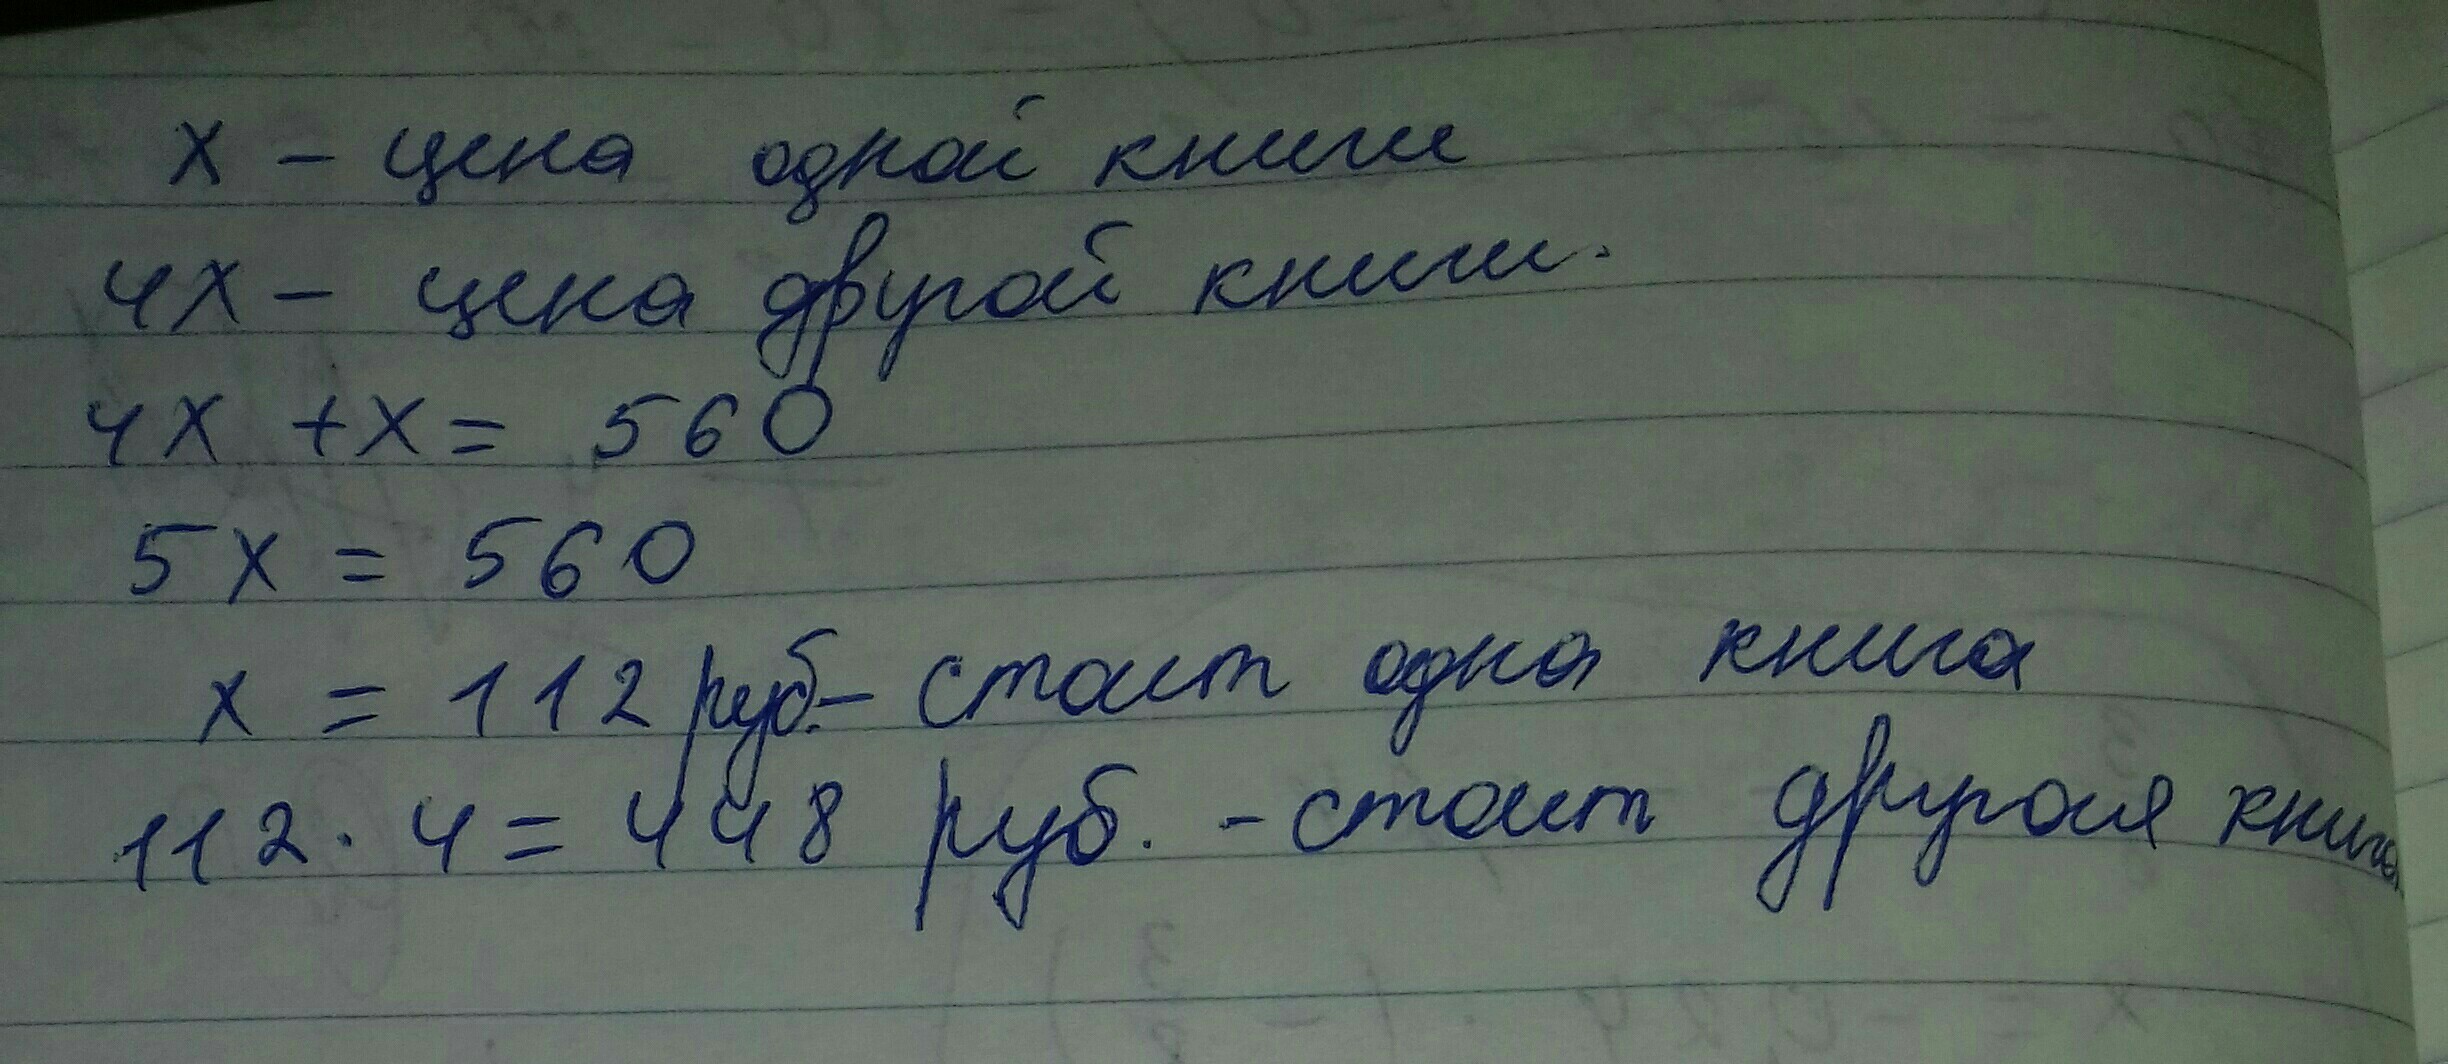 x – цена одной книги
4x – цена другой книги.
4x + x = 560
5x = 560
x = 112 руб. – стоит одна книга
112 · 4 = 448 руб. - стоит другая книга